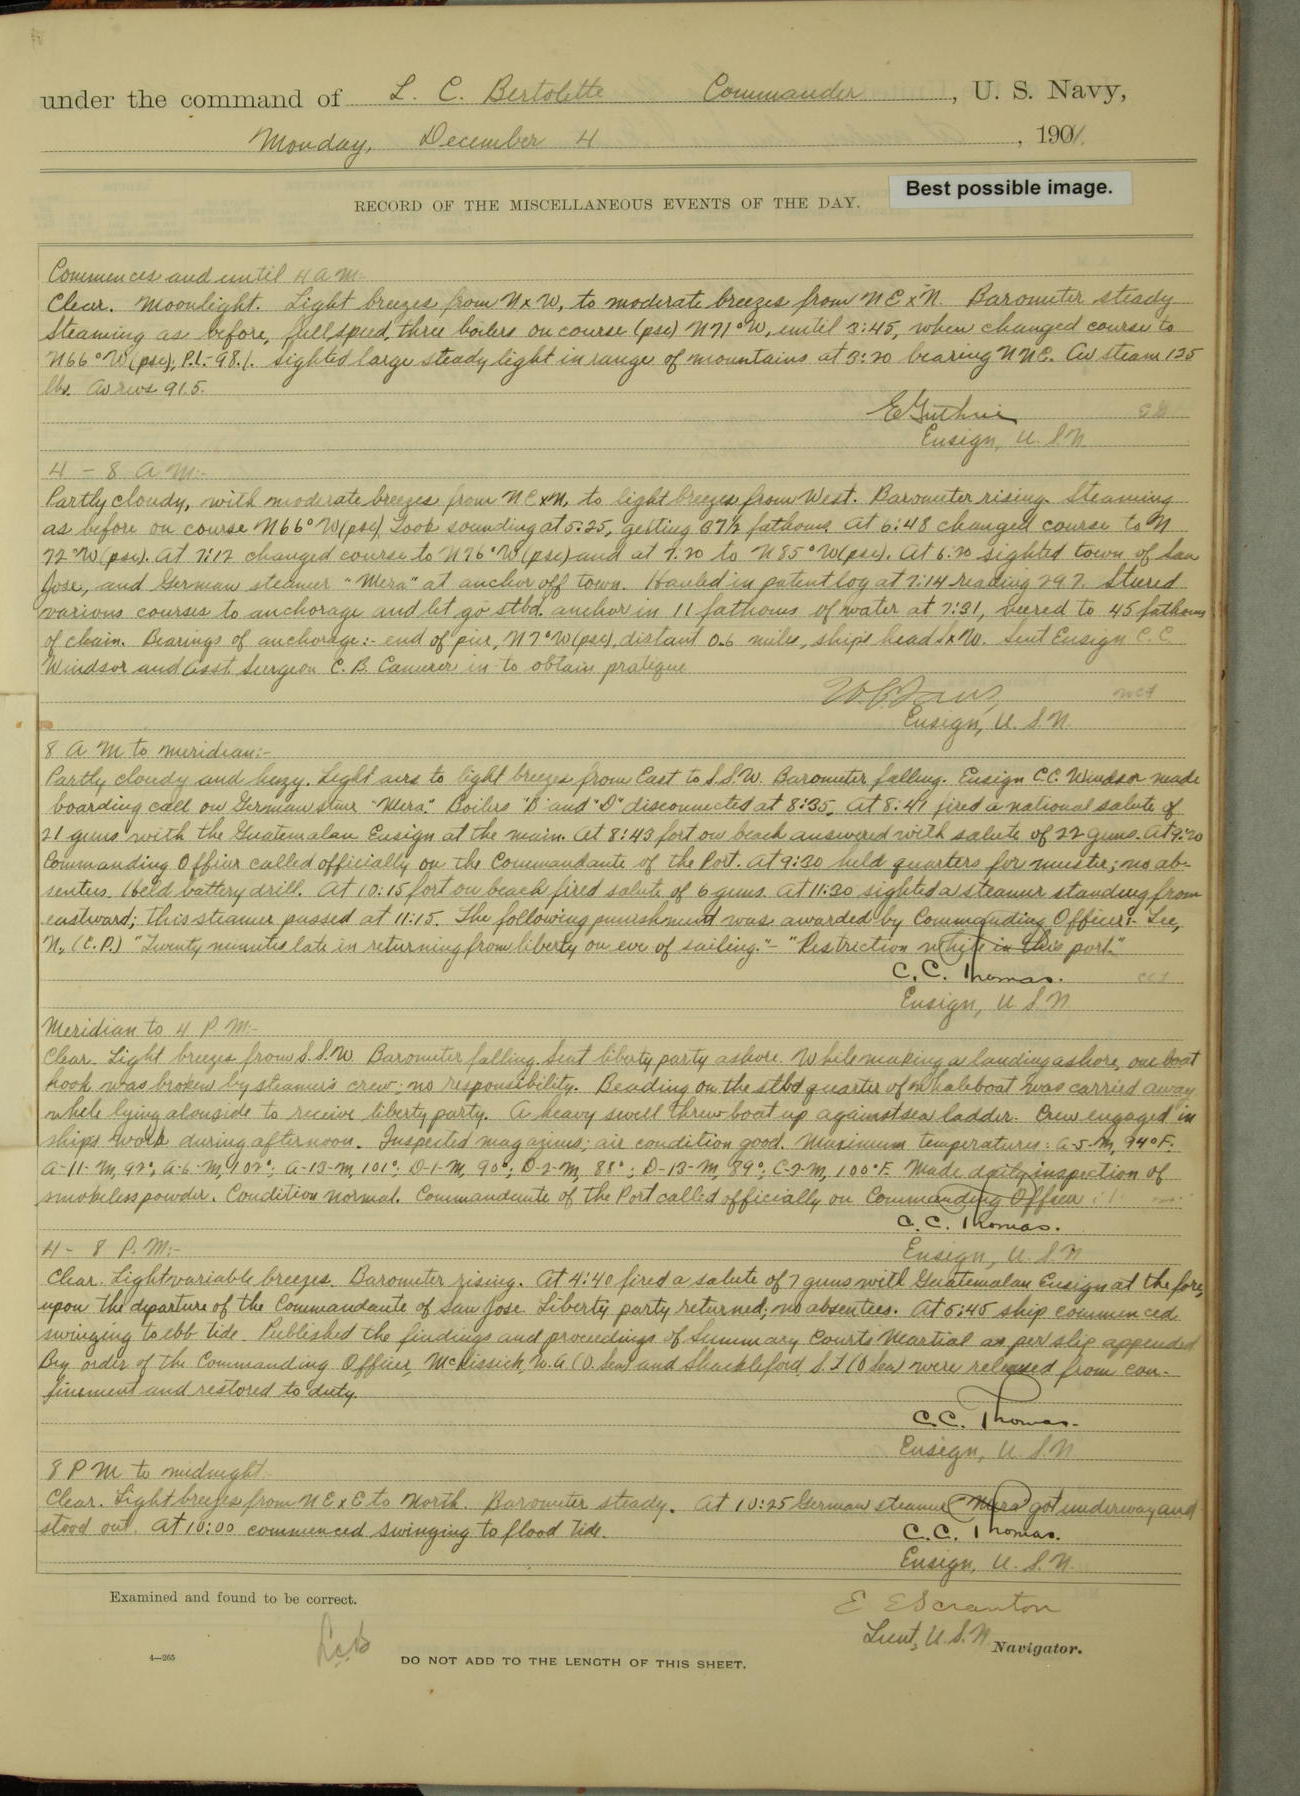 under the command of L. C. Bertolette Commander, U. S. Navy,
Monday, December 4, 190
Best possible image.
RECORD OF THE MISCELLANEOUS EVENTS OF THE DAY.
Commences and until 4 a m:-
Clear. Moonlight. Light breezes from N x W, to moderate breezes from N E x N. Barometer steady
Steaming as before, full speed, three boilers on course (psc) N 71° W, until 3:45, when changed course to
N 66° W (psc), P.L.- 98.1. Sighted large steady light in range of mountains at 3:20 bearing N N E. Av steam 125
lbs. Av revs 91.5.
E Guthrie
Ensign, U. S. N
4 - 8 A M:-
Partly cloudy, with moderate breezes from N E x N, to light breezes from West. Barometer rising. Steaming
as before on course N 66° W (psc). Took sounding at 5:25, getting 37½ fathoms. At 6:48 changed course to N
72° W (psc). At 7:12 changed course to N 76° W (psc) and at 7:20 to N 85° W (psc). At 6:20 sighted town of San
Jose, and German steamer "Mera" at anchor off town. Hauled in patent log at 7:14 reading 29.7. Steered
various courses to anchorage and let go stbd. anchor in 11 fathoms of water at 7:31, veered to 45 fathoms
of chain. Bearings of anchorage:- end of pier, N 7° W (psc), distant 0.6 miles, ships head S x W. Sent Ensign C. C.
Windsor and Asst. Surgeon C. B. Camerer in to obtain pratique
Ensign, U. S. N.
8 A M to meridian:-
Partly cloudy and hazy. Light airs to light breezes from East to S.S.W. Barometer falling. Ensign C.C. Windsor made
boarding call on German stmr "Mera". Boilers "B" and "D" disconnected at 8:35. At 8:41 fired a national salute of
21 guns with the Guatemalan Ensign at the main. At 8:43 fort on beach answered with salute of 22 guns. At 9:20
Commanding Officer called officially on the Commandante of the Port. At 9:30 held quarters for muster; no ab-
sentees. Held battery drill. At 10:15 fort on beach fired salute of 6 guns. At 11:30 sighted a steamer standing from
eastward; this steamer passed at 11:15. The following punishment was awarded by Commanding Officer:- Lee,
N., (C.P.) "Twenty minutes late in returning from liberty on eve of sailing."- "Restriction while in this port."
C. C. Thomas.
Ensign, U. S. N
Meridian to 4 P M:-
Clear. Light breezes from S.S.W. Barometer falling. Sent liberty party ashore. While making a landing ashore, one boat
hook was broken by steamer's crew; no responsibility. Beading on the stbd quarter of whaleboat was carried away
while lying alongside to receive liberty party. A heavy swell threw boat up against sea ladder. Crew engaged in
ships work during afternoon. Inspected magazines; air condition good. Maximum temperatures: A-5-M, 94° F.
A-11-M, 92°; A-6-M, 102°; A-13-M, 101°; D-1-M, 90°; D-2-M, 88°; D-13-M, 89°; C-2-M, 100° F. Made daily inspection of
smokeless powder. Condition normal. Commandante of the Port called officially on Commanding Officer
C. C. Thomas.
Ensign, U. S. N
4 - 8 P. M:-
Clear. Light variable breezes. Barometer rising. At 4:40 fired a salute of 7 guns with Guatemalan Ensign at the fore,
upon the departure of the Commandante of San Jose. Liberty party returned; no absentees. At 5:45 ship commenced
swinging to ebb tide. Published the findings and proceedings of Summary Courts Martial as per slip appended
By order of the Commanding Officer, McKissick, W. A (O. Sea) and Shackleford, S. L (O Sea) were released from con-
finement and restored to duty.
C. C. Thomas.
Ensign, U. S. N
8 P M to midnight.
Clear. Light breezes from N E x E to North. Barometer steady. At 10:25 German steamer Mera got underway and
stood out. At 10:00 commenced swinging to flood tide.
C. C. Thomas.
Ensign, U. S. N.
Examined and found to be correct.
E E Scranton
Lieut, U. S. N. Navigator.
4—265
DO NOT ADD TO THE LENGTH OF THIS SHEET.